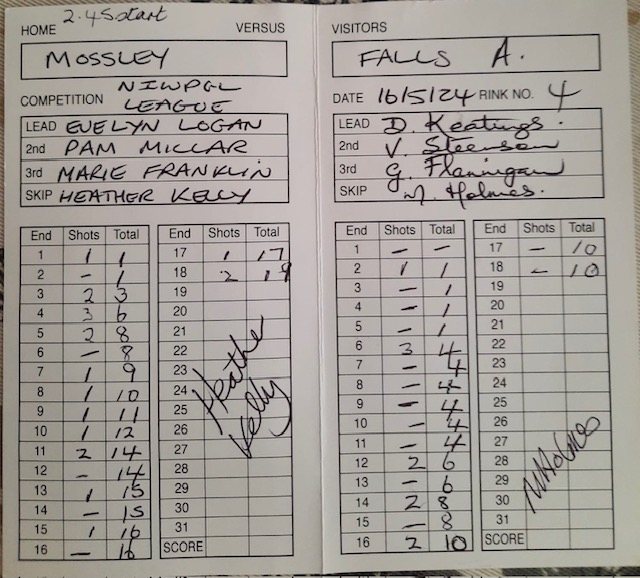 2.45 start
HOME VERSUS
MOSSLEY
COMPETITION NIWPGL
LEAGUE
LEAD EVELYN LOGAN
2nd PAM MILLAR
3rd MARIE FRANKLIN
SKIP HEATHER KELLY
End Shots Total
1 1 1
2 - 1
3 2 3
4 3 6
5 2 8
6 - 8
7 1 9
8 1 10
9 1 11
10 1 12
11 2 14
12 - 14
13 1 15
14 - 15
15 1 16
16 - 16
End Shots Total
17 1 17
18 2 19
19
20
21
22
23
24
25
26
27
28
29
30
31
SCORE
Heather
Kelly
VISITORS
FALLS A.
DATE 16/5/24 RINK NO. 4
LEAD D. Keatings.
2nd V. Steenson
3rd G. Flannigan
SKIP M. Holmes.
End Shots Total
1 - -
2 1 1
3 - 1
4 - 1
5 - 1
6 3 4
7 - 4
8 - 4
9 - 4
10 - 4
11 - 4
12 2 6
13 - 6
14 2 8
15 - 8
16 2 10
End Shots Total
17 - 10
18 - 10
19
20
21
22
23
24
25
26
27
28
29
30
31
SCORE
M Holmes